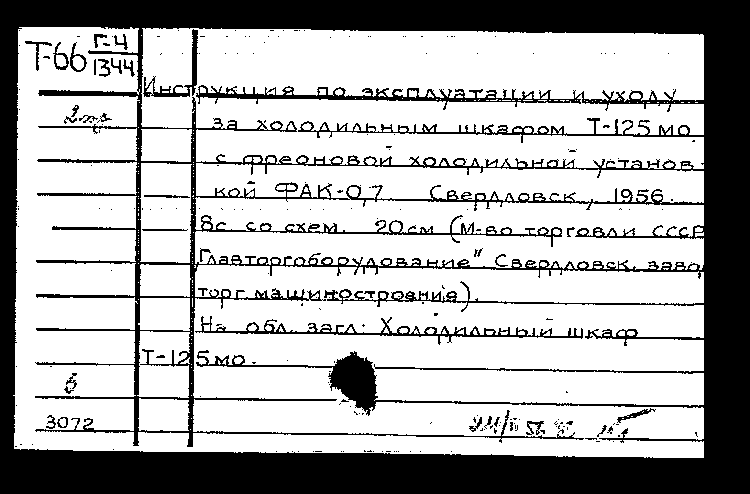 Т-66 Г-4
1344
Инструкция по эксплуатации и уходу
2 пр
за холодильным шкафом Т-125 мо
с фреоновой холодильной установ-
кой ФАК-0,7 Свердловск, 1956.
8с со схем. 20см (М-во торговли СССР
Главторгоборудование" Свердловск. завод
торг машиностроения).
На обл. загл: Холодильный шкаф
Т-125мо.
3072